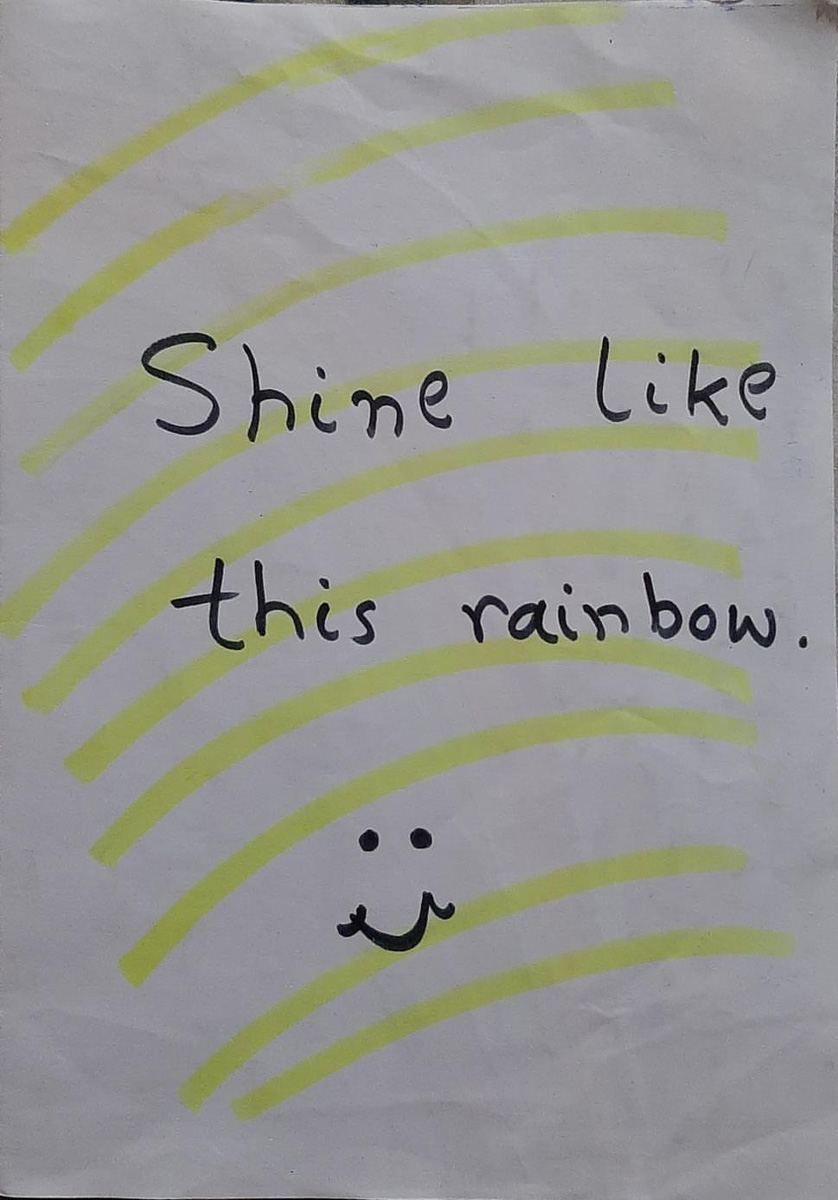 Shine like
this rainbow.